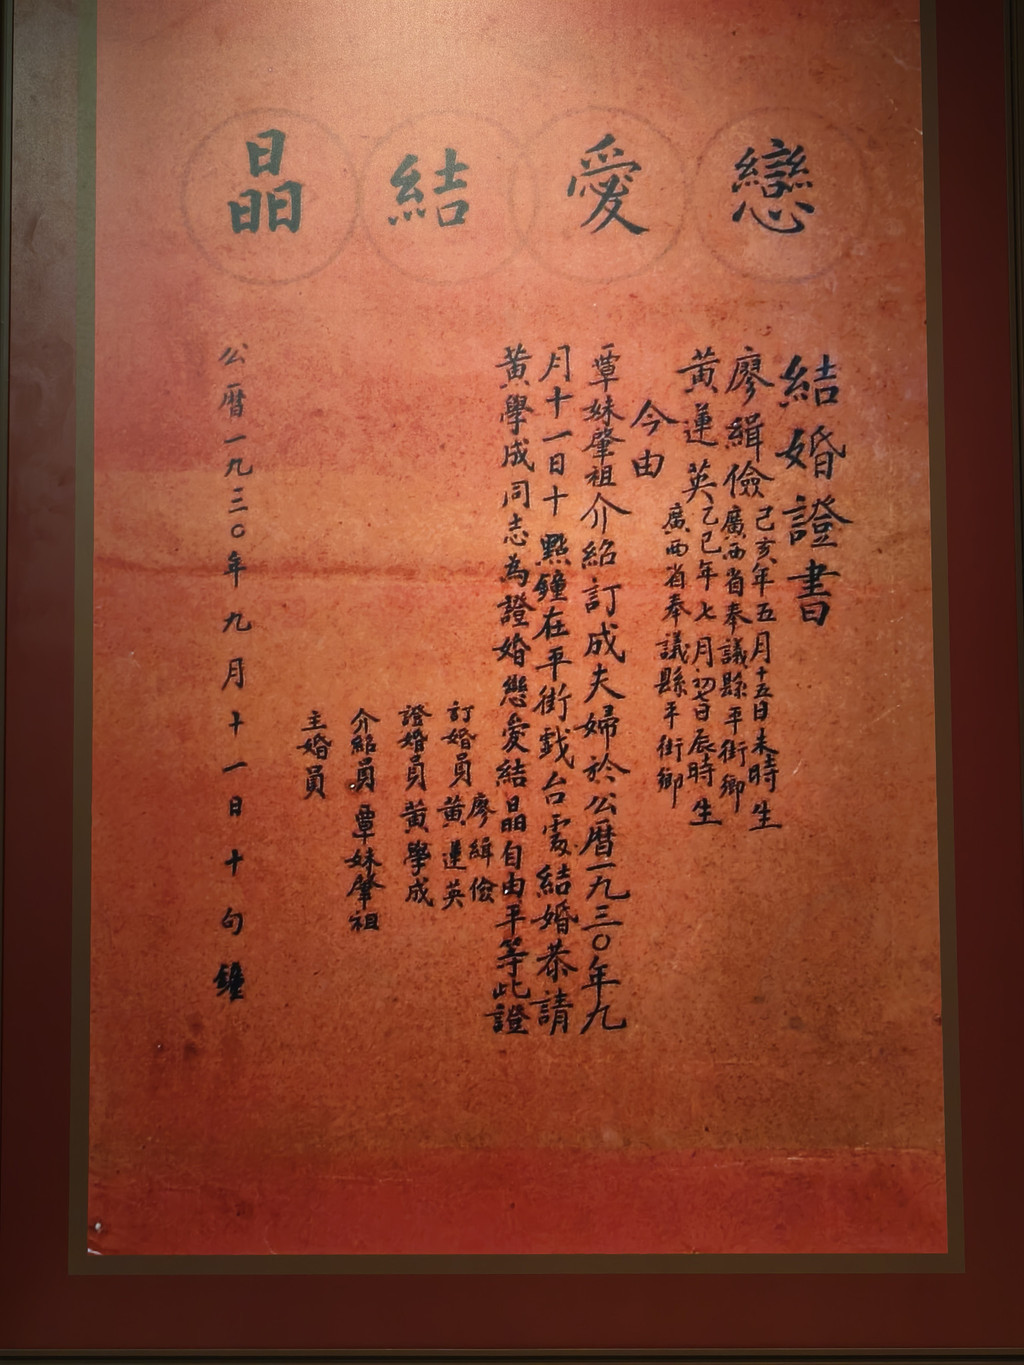 戀愛結晶
結婚證書
廖緝儉 己亥年五月十五日未時生
廣西省奉議縣平街鄉
黃蓮英 乙巳年七月初七日辰時生
廣西省奉議縣平街鄉
今由
覃妹肇祖介紹訂成夫婦於公曆一九三〇年九
月十一日十點鐘在平街戲台處結婚恭請
黃學成同志為證婚戀愛結晶自由平等此證
訂婚員 廖緝儉
黃蓮英
證婚員 黃學成
介紹員 覃妹肇祖
主婚員
公曆一九三〇年九月十一日十句鐘